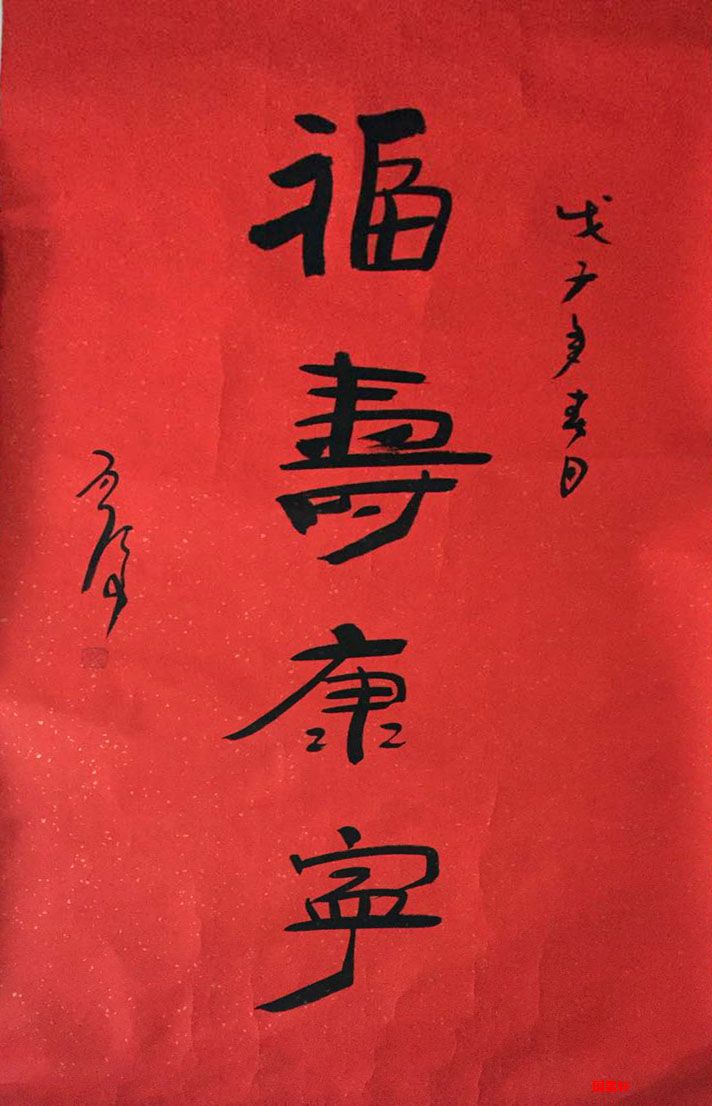 戊子年春日
福壽康寧